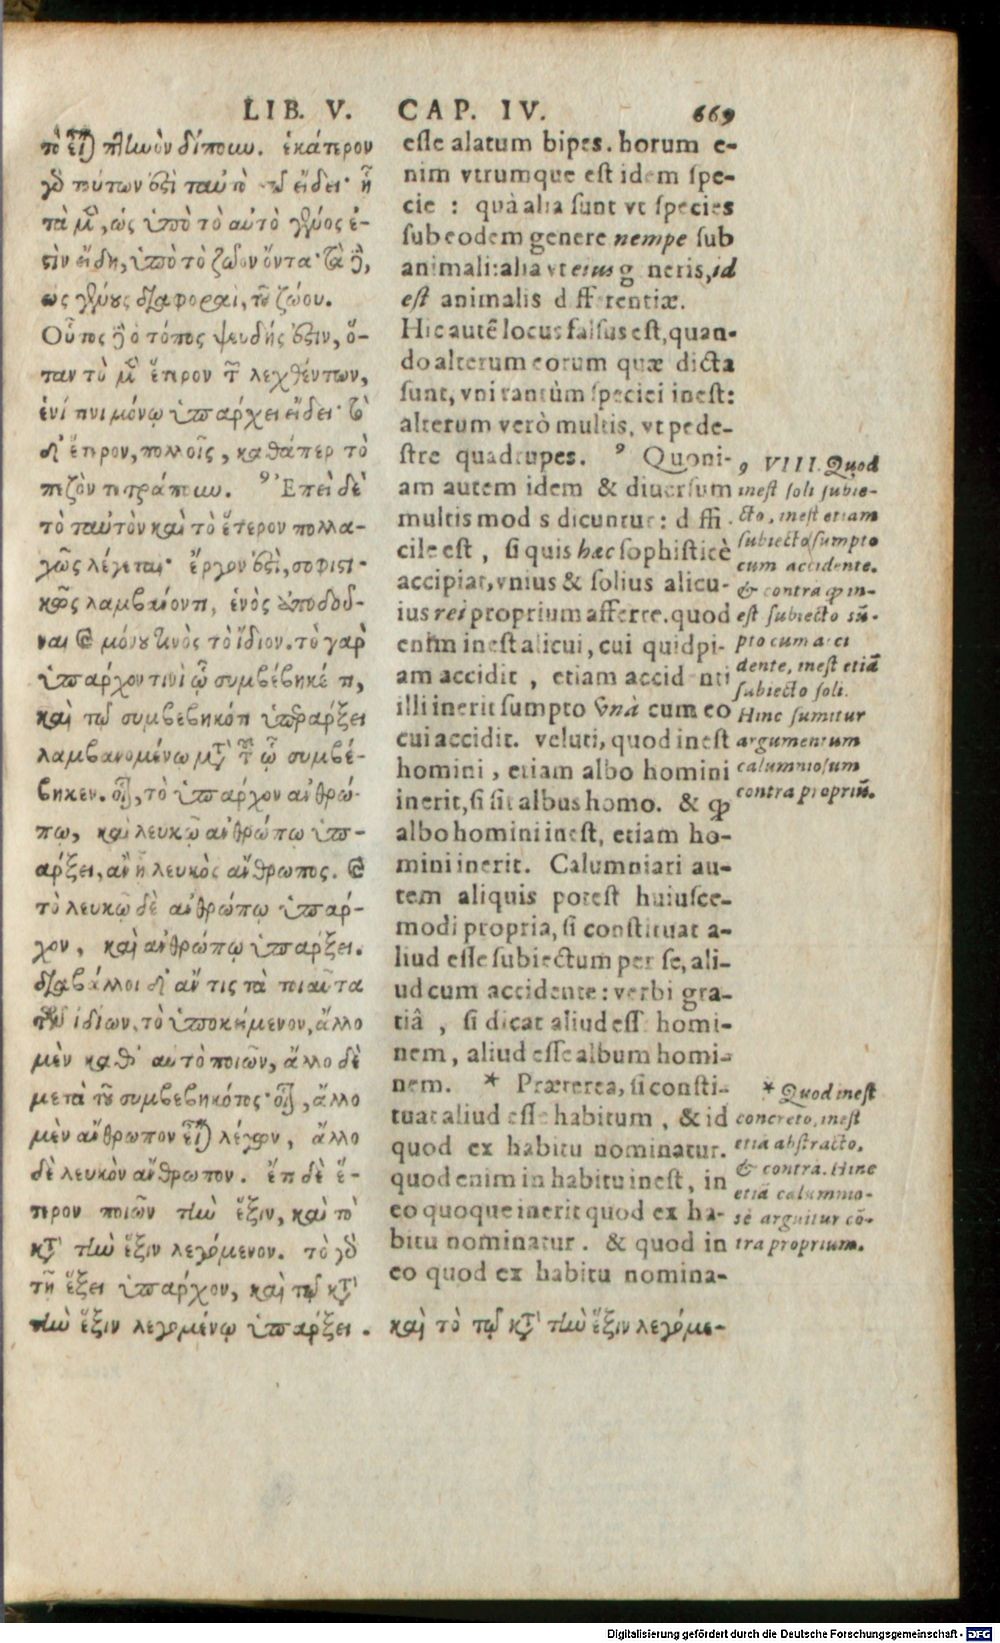 LIB. V. CAP. IV. 669
τὸ εἶναι πτηνὸν δίπουν. ἑκάτερον
γὰρ τούτων ἐστὶ ταὐτὸ τῷ εἴδει· ᾗ
τὰ μὲν, ὡς ὑπὸ τὸ αὐτὸ γένος ἐ-
στὶν εἴδη, ὑπὸ τὸ ζῷον ὄντα· τὰ δὲ,
ὡς γένους διαφοραὶ, τοῦ ζώου.
Οὗτος δὲ ὁ τόπος ψευδής ἐστιν, ὅ-
ταν τὸ μὲν ἕτερον τῶν λεχθέντων,
ἑνί τινι μόνῳ ὑπάρχει εἴδει· τὸ
δ' ἕτερον, πολλοῖς, καθάπερ τὸ
πεζὸν τετράπουν. 9 Ἐπεὶ δὲ
τὸ ταὐτὸν καὶ τὸ ἕτερον πολλα-
χῶς λέγεται· ἔργον ἐστὶ, σοφιστι-
κῶς λαμβάνοντι, ἑνὸς ἀποδοῦ-
ναι καὶ μόνου τινὸς τὸ ἴδιον. τὸ γὰρ
ὑπάρχον τινὶ ᾧ συμβέβηκέ τι,
καὶ τῷ συμβεβηκότι ὑπάρξει
λαμβανομένῳ μετὰ τοῦ ᾧ συμβέ-
βηκεν. οἷον, τὸ ὑπάρχον ἀνθρώ-
πῳ, καὶ λευκῷ ἀνθρώπῳ ὑπ-
άρξει, ἂν ᾖ λευκὸς ἄνθρωπος. καὶ
τὸ λευκῷ δὲ ἀνθρώπῳ ὑπάρ-
χον, καὶ ἀνθρώπῳ ὑπάρξει.
διαβάλλοι δ' ἄν τις τὰ τοιαῦτα
τῶν ἰδίων, τὸ ὑποκείμενον, ἄλλο
μὲν καθ' αὑτὸ ποιῶν, ἄλλο δὲ
μετὰ τοῦ συμβεβηκότος· οἷον, ἄλλο
μὲν ἄνθρωπον εἶναι λέγων, ἄλλο
δὲ λευκὸν ἄνθρωπον. ἔτι δὲ ἕ-
τερον ποιῶν τὴν ἕξιν, καὶ τὸ
κατὰ τὴν ἕξιν λεγόμενον. τὸ γὰρ
τῇ ἕξει ὑπάρχον, καὶ τῷ κατὰ
τὴν ἕξιν λεγομένῳ ὑπάρξει.
esse alatum bipes. horum e-
nim vtrumque est idem spe-
cie : quà alia sunt vt species
sub eodem genere nempe sub
animali: alia vt eius generis, id
est animalis differentiæ.
Hic autē locus falsus est, quan-
do alterum eorum quæ dicta
sunt, vni tantùm speciei inest:
alterum verò multis, vt pede-
stre quadrupes. 9 Quoni-
am autem idem & diuersum
multis modis dicuntur: diffi-
cile est , si quis hæc sophisticè
accipiat, vnius & solius alicu-
ius rei proprium afferre. quod
enim inest alicui, cui quidpi-
am accidit , etiam accidenti
illi inerit sumpto vnà cum eo
cui accidit. veluti, quod inest
homini , etiam albo homini
inerit, si sit albus homo. & ꝙ
albo homini inest, etiam ho-
mini inerit. Calumniari au-
tem aliquis potest huiusce-
modi propria, si constituat a-
liud esse subiectum per se, ali-
ud cum accidente: verbi gra-
tiâ , si dicat aliud esse homi-
nem, aliud esse album homi-
nem. * Præterea, si consti-
tuat aliud esse habitum , & id
quod ex habitu nominatur.
quod enim in habitu inest, in
eo quoque inerit quod ex ha-
bitu nominatur. & quod in
eo quod ex habitu nomina-
καὶ τὸ τῷ κατὰ τὴν ἕξιν λεγόμε-
9 VIII. Quod
inest soli subie-
cto, inest etiam
subiecto sumpto
cum accidente.
& contra ꝙ in-
est subiecto sū-
pto cum acci
dente, inest etiā
subiecto soli.
Hinc sumitur
argumentum
calumniosum
contra propriū.
* Quod inest
concreto, inest
etiā abstracto,
& contra. Hinc
etiā calumnio-
sè arguitur cō-
tra proprium.
Digitalisierung gefördert durch die Deutsche Forschungsgemeinschaft - DFG